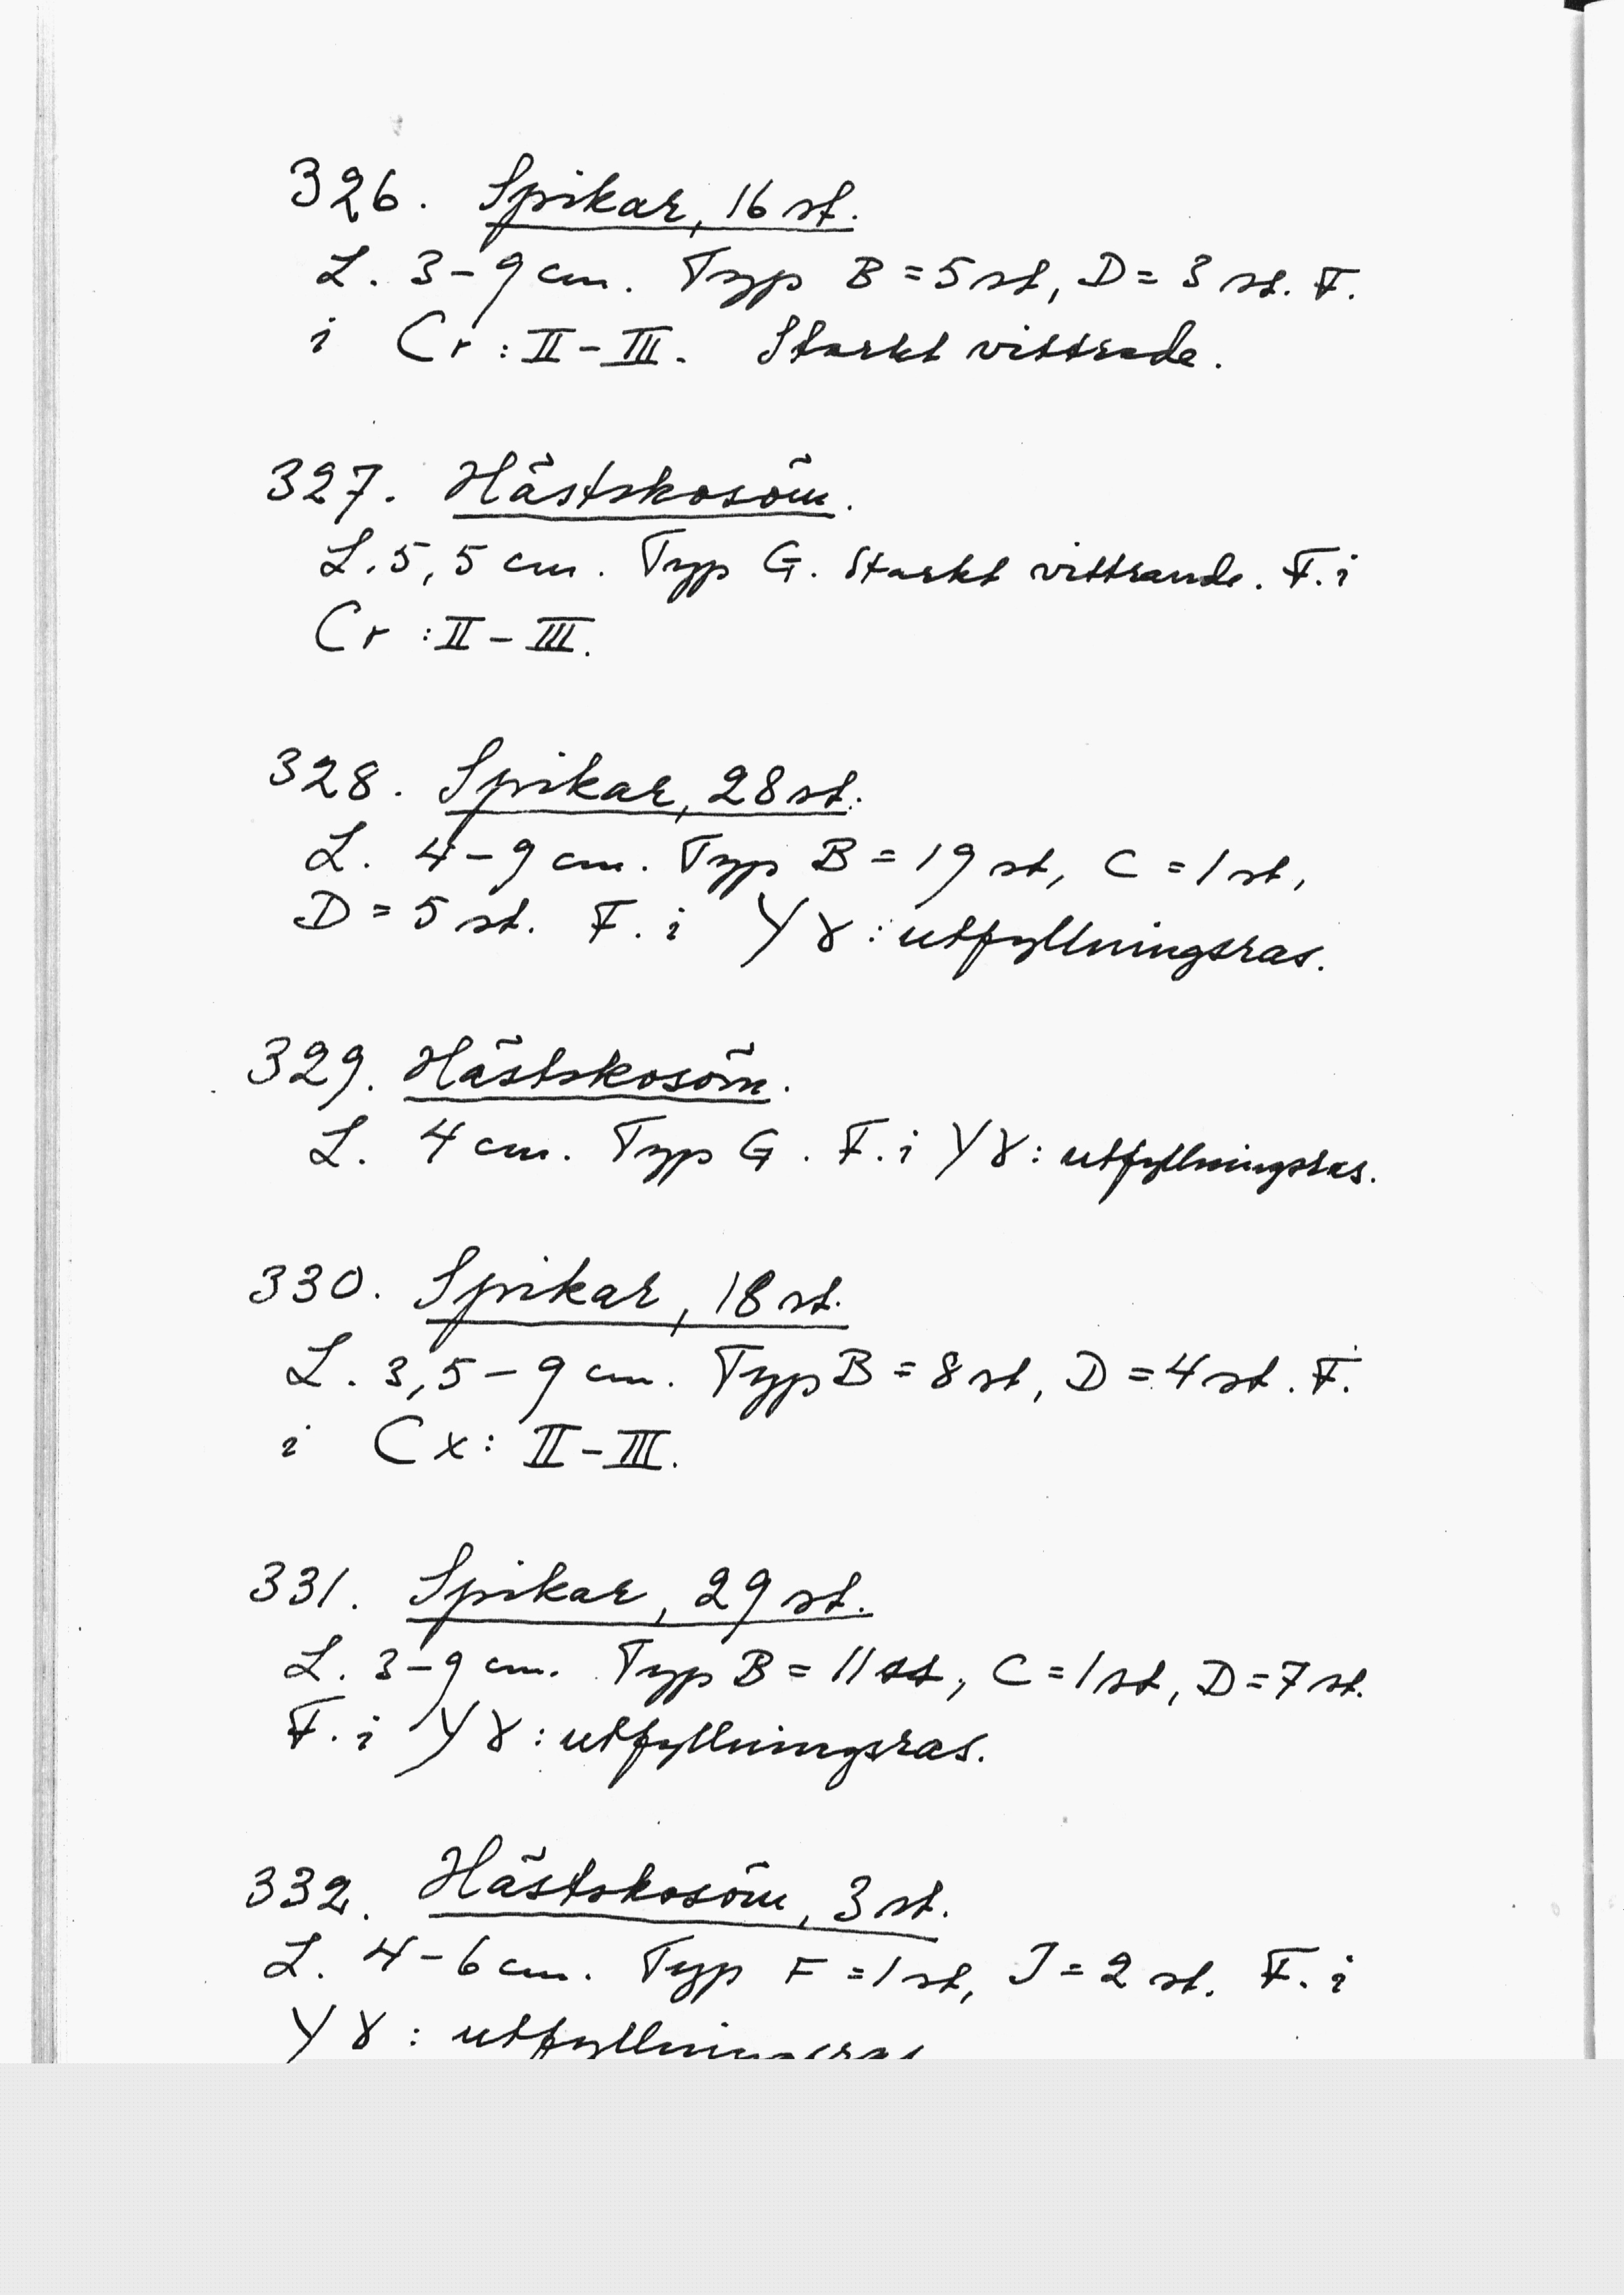 326. Spikar, 16 st.
L. 3-9 cm. Typ B = 5 st, D = 3 st. F.
i Cr: II-III. Starkt vittrade.
327. Hästskosöm.
L. 5,5 cm. Typ G. Starkt vittrande. F. i
Cr: II-III.
328. Spikar, 28 st.
L. 4-9 cm. Typ B = 19 st, C = 1 st,
D = 5 st. F. i Yɣ: utfyllningsras.
329. Hästskosöm.
L. 4 cm. Typ G. F. i Yɣ: utfyllningsras.
330. Spikar, 18 st.
L. 3,5-9 cm. Typ B = 8 st, D = 4 st. F.
i Cx: II-III.
331. Spikar, 29 st.
L. 3-9 cm. Typ B = 11 st, C = 1 st, D = 7 st.
F. i Yɣ: utfyllningsras.
332. Hästskosöm, 3 st.
L. 4-6 cm. Typ F = 1 st, J = 2 st. F. i
Yɣ: utfyllningsras